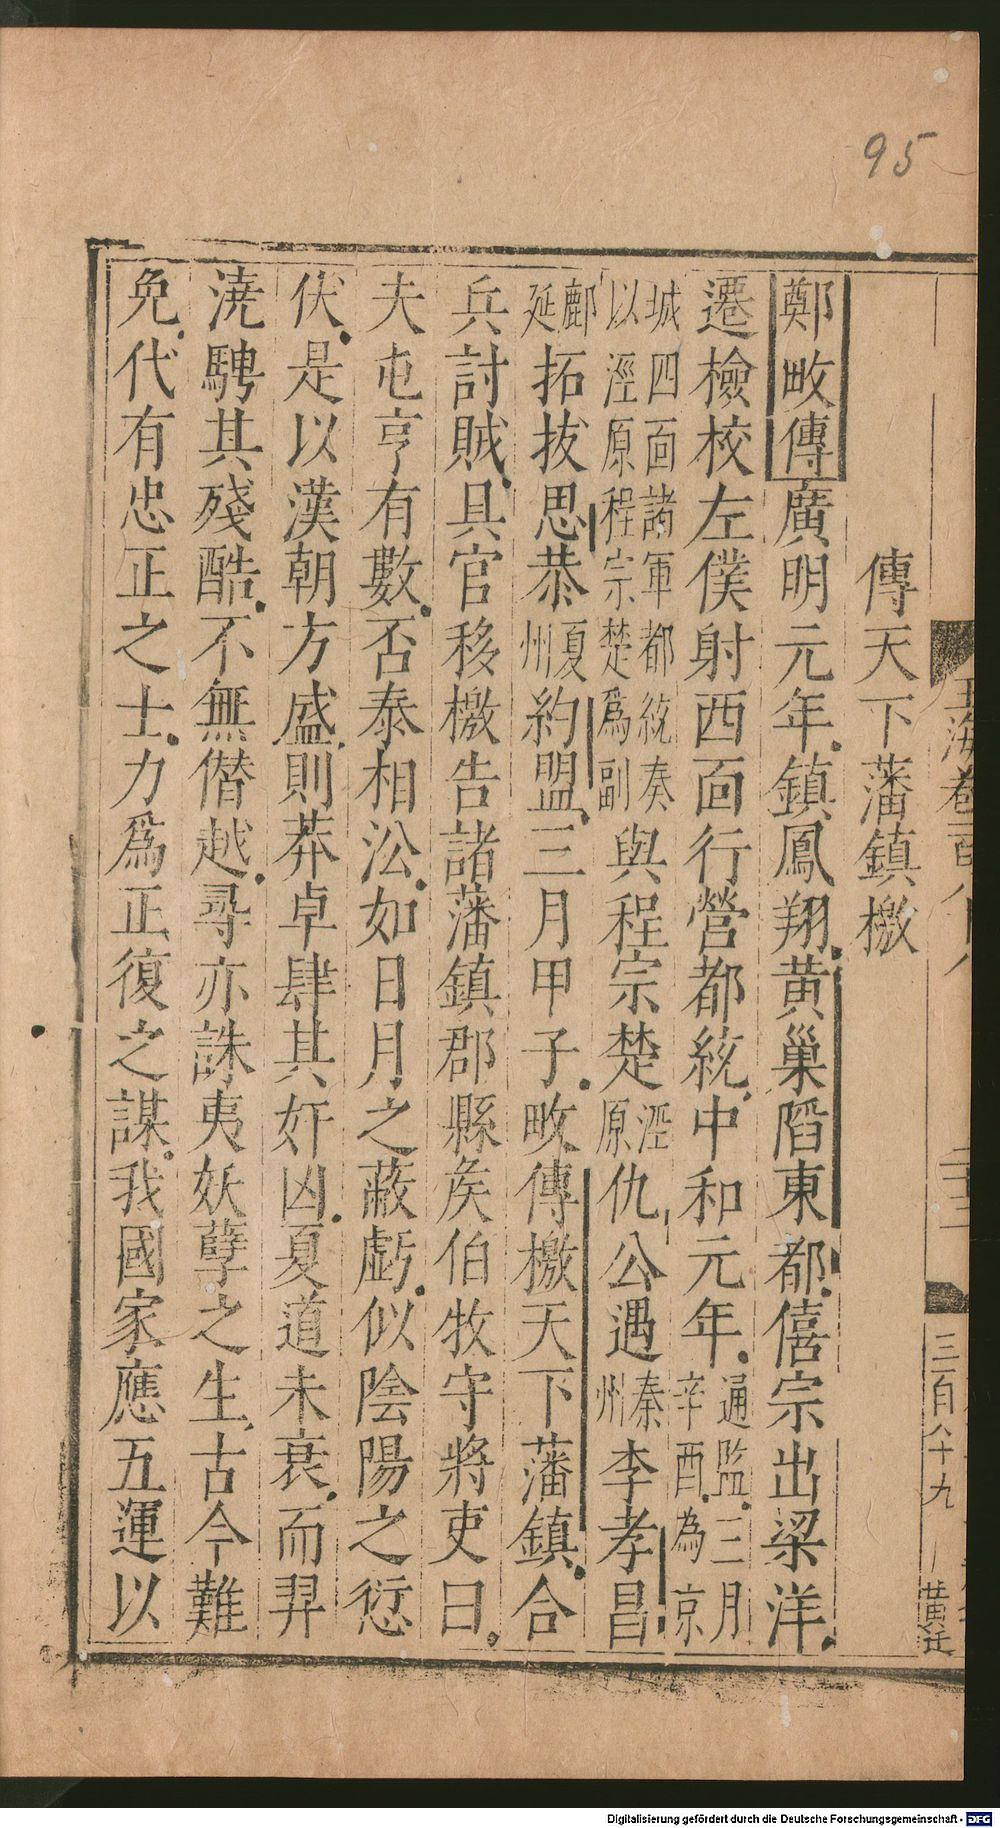 95
玉海卷一百八十八
三百八十九
黄迁
傳天下藩鎮檄
鄭畋傳廣明元年鎮鳳翔黄巢陷東都僖宗出梁洋
遷檢校左僕射西面行營都統中和元年通監三月辛酉為京
城四面諸軍都統奏以涇原程宗楚爲副與程宗楚涇原仇公遇秦州李孝昌
鄜延拓拔思恭夏州約盟三月甲子畋傳檄天下藩鎮合
兵討賊具官移檄告諸藩鎮郡縣矦伯牧守將吏曰
夫屯亨有數否泰相㳂如日月之蔽虧似陰陽之愆
伏是以漢朝方盛則莽卓肆其奸凶夏道未衰而羿
澆騁其殘酷不無僣越尋亦誅夷妖孽之生古今難
免代有忠正之士力爲正復之謀我國家應五運以
Digitalisierung gefördert durch die Deutsche Forschungsgemeinschaft - DFG